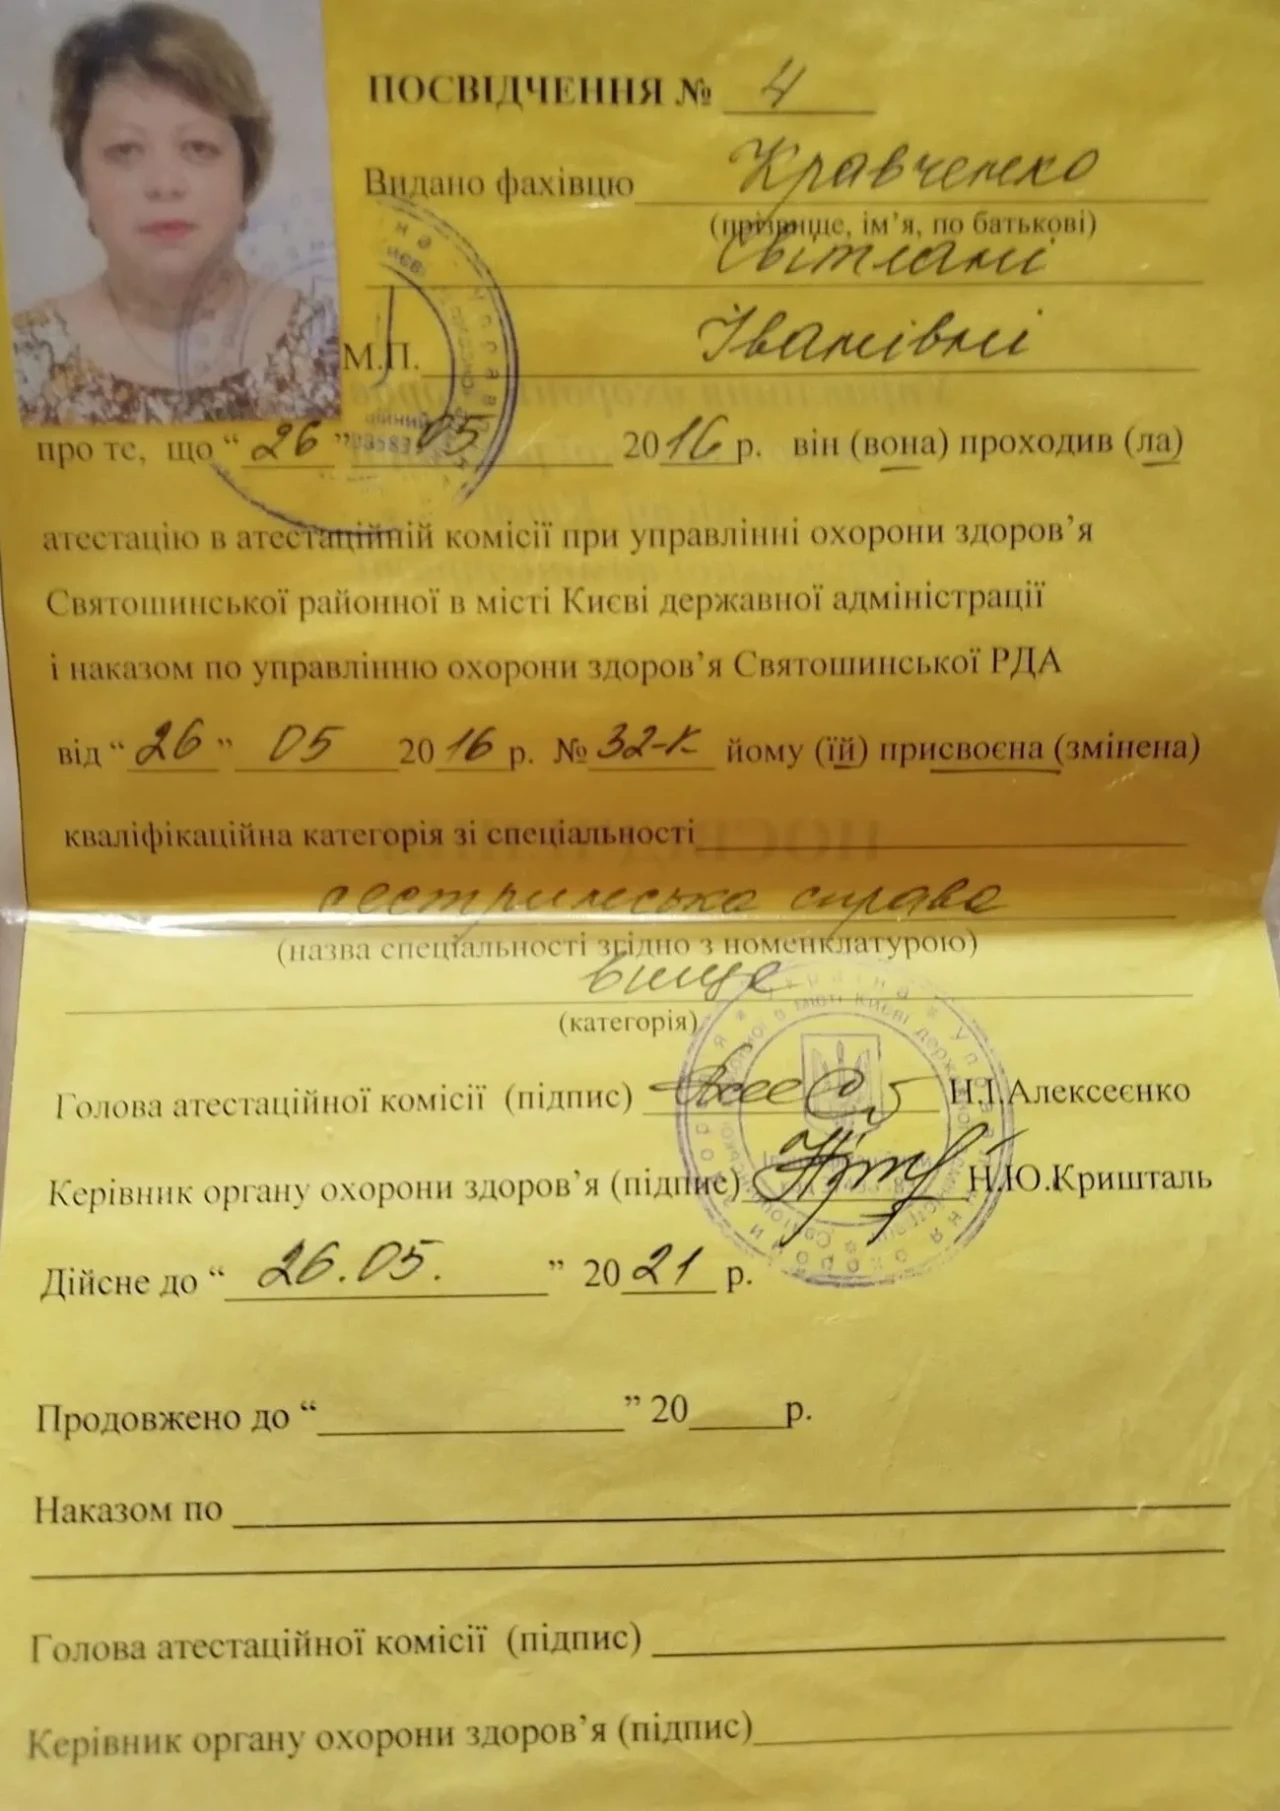 ПОСВІДЧЕННЯ № 4
Видано фахівцю Кравченко
(прізвище, ім’я, по батькові)
Світлані
М.П. Іванівні
про те, що “ 26 ” 05 2016 р. він (вона) проходив (ла)
атестацію в атестаційній комісії при управлінні охорони здоров’я
Святошинської районної в місті Києві державної адміністрації
і наказом по управлінню охорони здоров’я Святошинської РДА
від “ 26 ” 05 2016 р. № 32-к йому (їй) присвоєна (змінена)
кваліфікаційна категорія зі спеціальності
сестринська справа
(назва спеціальності згідно з номенклатурою)
вища
(категорія)
Голова атестаційної комісії (підпис) Н.І.Алексеєнко
Керівник органу охорони здоров’я (підпис) Н.Ю.Кришталь
Дійсне до “ 26.05. ” 2021 р.
Продовжено до “ ” 20 р.
Наказом по
Голова атестаційної комісії (підпис)
Керівник органу охорони здоров’я (підпис)